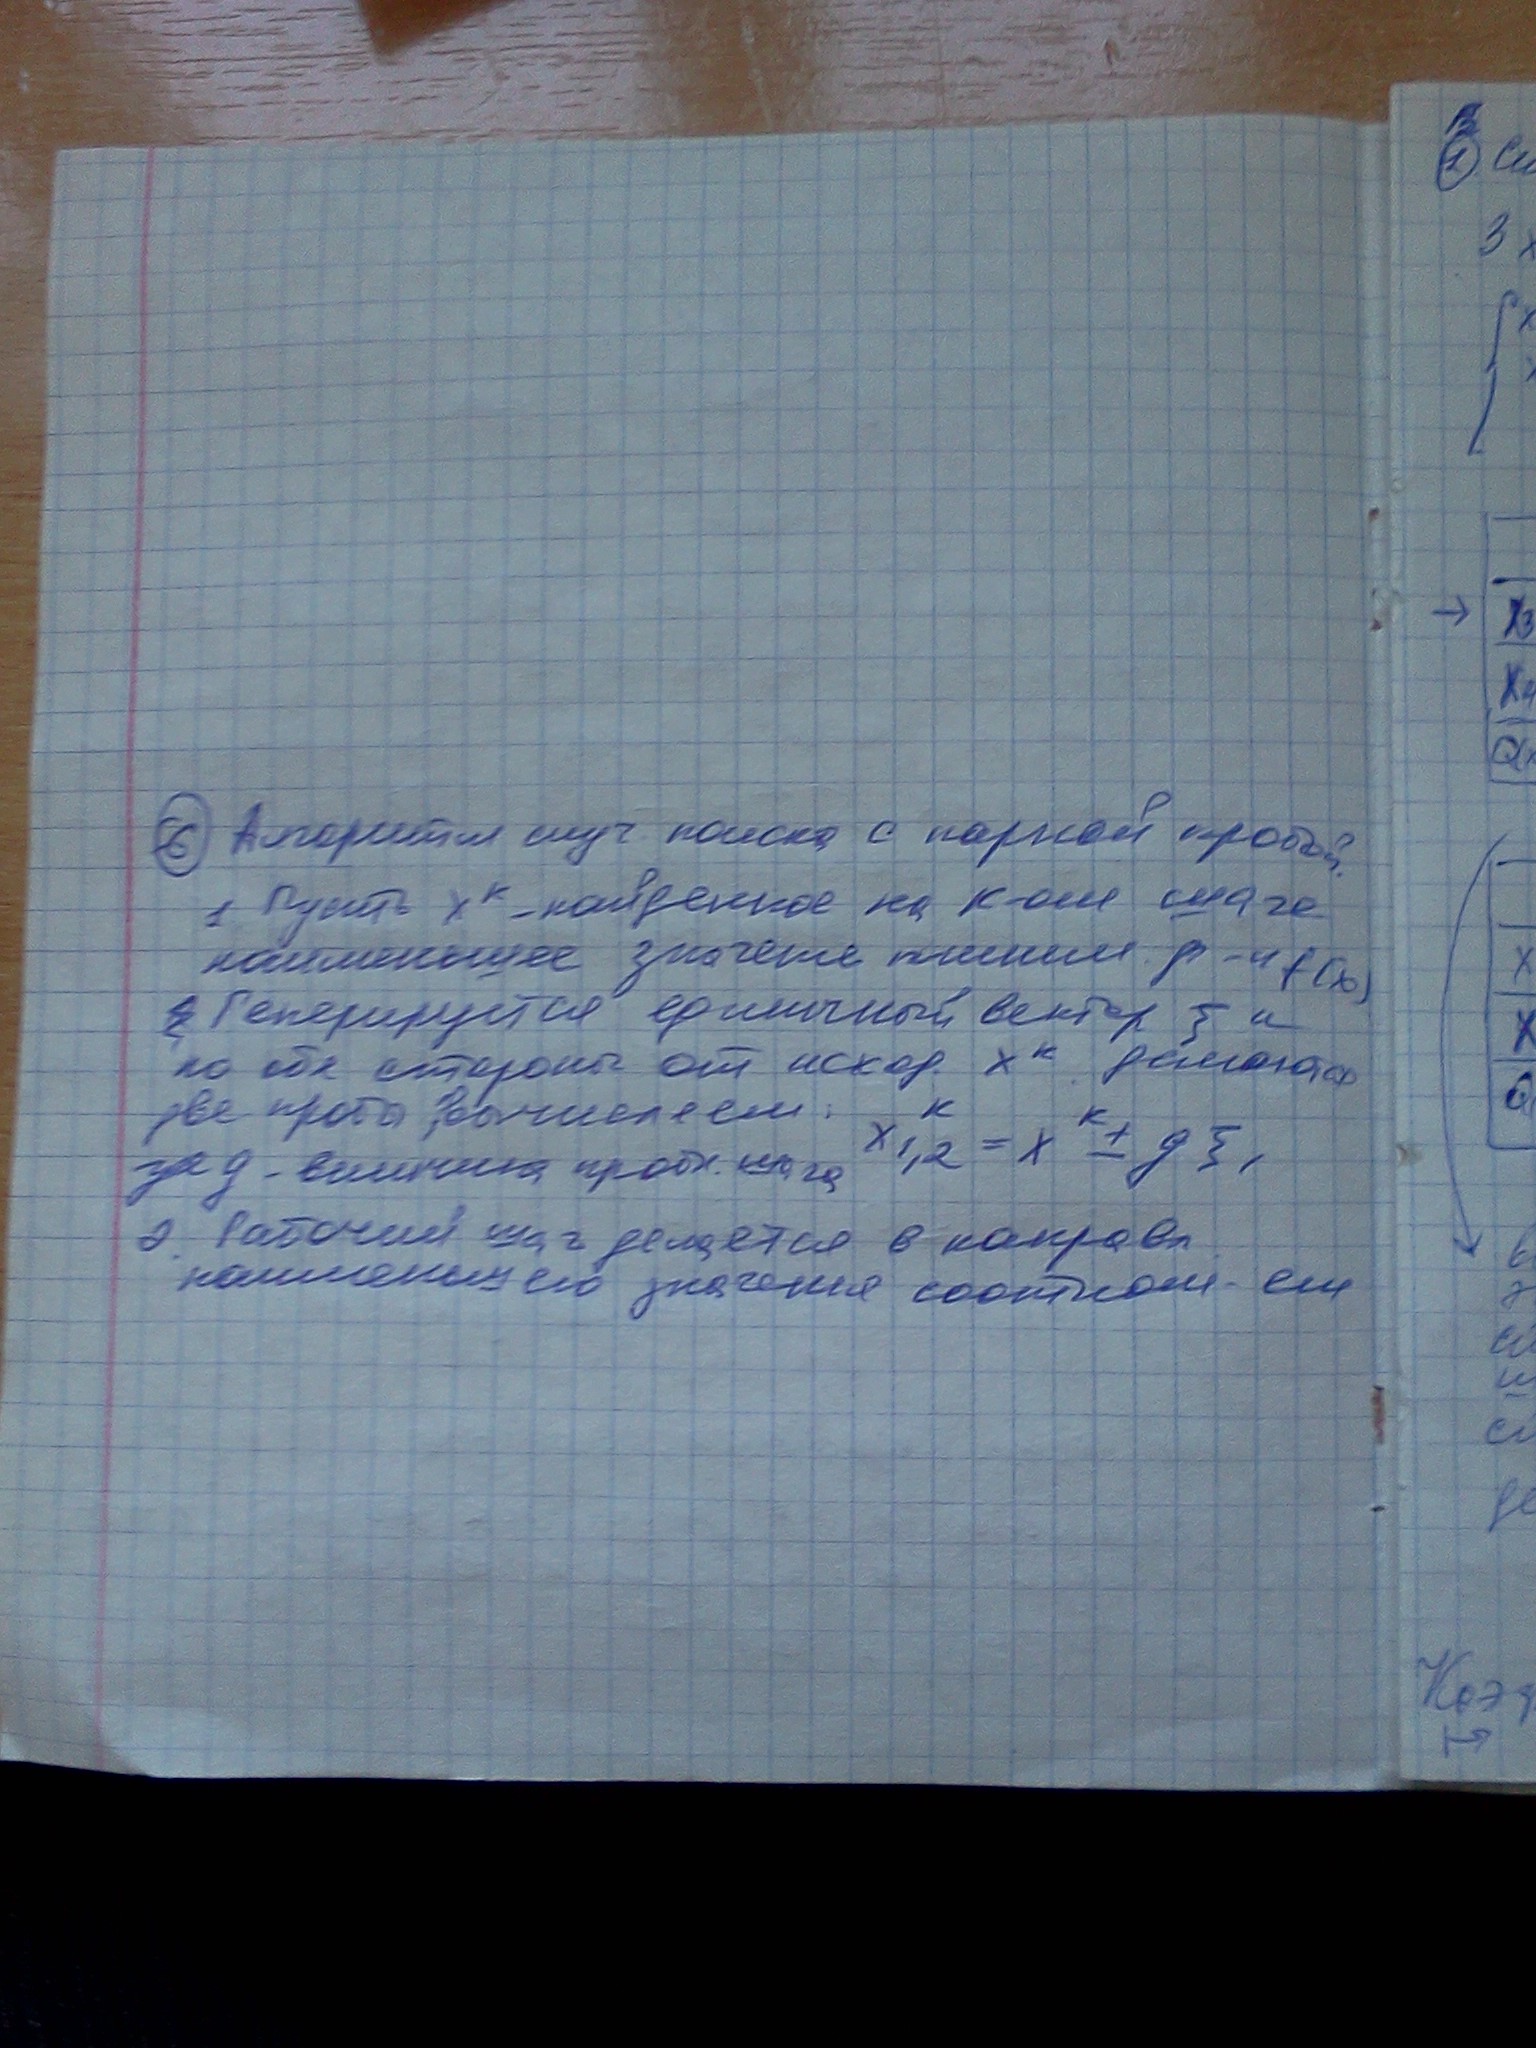 6 Алгоритм случ. поиска с парной пробой.
1 Пусть x^k - найденное на k-ом шаге
наименьшее значение миним. ф-и f(x)
Генерируется единичный вектор ξ и
по обе стороны от исход. x^k делаются
две пробы, вычисляем:
x^k 1,2 = x^k ± g ξ,
где g - величина пробн. шага
2. Рабочий шаг делается в направл.
наименьшего значения соотнош-ем
1
3 x
x
x
→
x3
x4
Q
x
x
Q